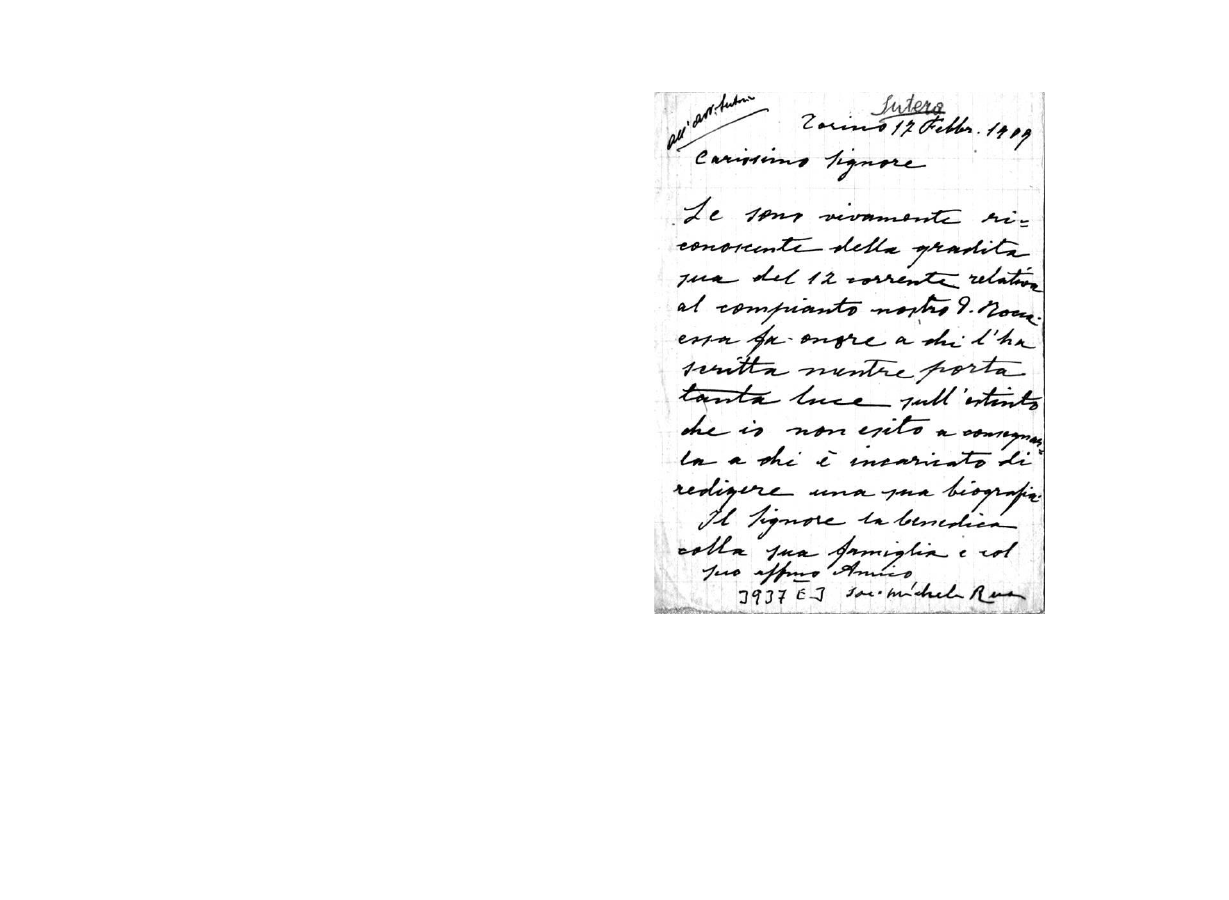 Sutero
all'avv. Sutera
Torino 17 Febbr. 1909
Carissimo Signore
Le sono vivamente ri=
conoscente della gradita
sua del 12 corrente relativa
al compianto nostro D.
essa fa onore a chi l'ha
scritta mentre porta
tanta luce sull'estinto
che io non esito a consegnar=
la a chi è incaricato di
redigere una sua biografia.
Il Signore la benedica
colla sua famiglia e col
suo affmo Amico
3937 E3 Sac. Michele Rua